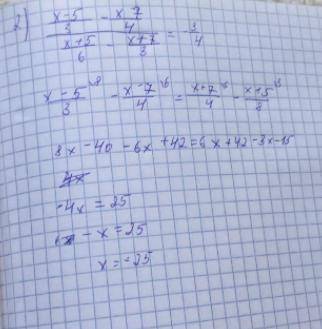 2) ((x-5)/3 - (x-7)/4) / ((x+5)/6 - (x+7)/3) = -3/4
(x-5)/3 ^8 - (x-7)/4 ^6 = (x+7)/4 ^6 - (x+5)/8 ^3
8x - 40 - 6x + 42 = 6x + 42 - 3x - 15
4x
-4x = 25
- x = 25
x = -25